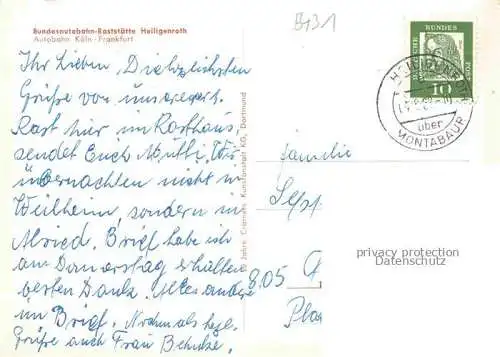 Bundesautobahn-Raststätte Heiligenroth
Autobahn Köln-Frankfurt
Ihr Lieben, Die herzlichsten
Grüße von unserer ersten
Rast hier im Rasthaus,
sendet Euch Mutti. Wir
übernachten nicht in
Weilheim, sondern in
Brief habe ich
am Donnerstag erhalten
besten Dank. Alles andere
im Brief. Nochmals herzl.
Grüße auch Frau
Jahre Cramers Kunstanstalt KG, Dortmund
8431
DEUTSCHE
BUNDES
POST
10
HEILIGENROTH
über
MONTABAUR
Familie
805
privacy protection
Datenschutz